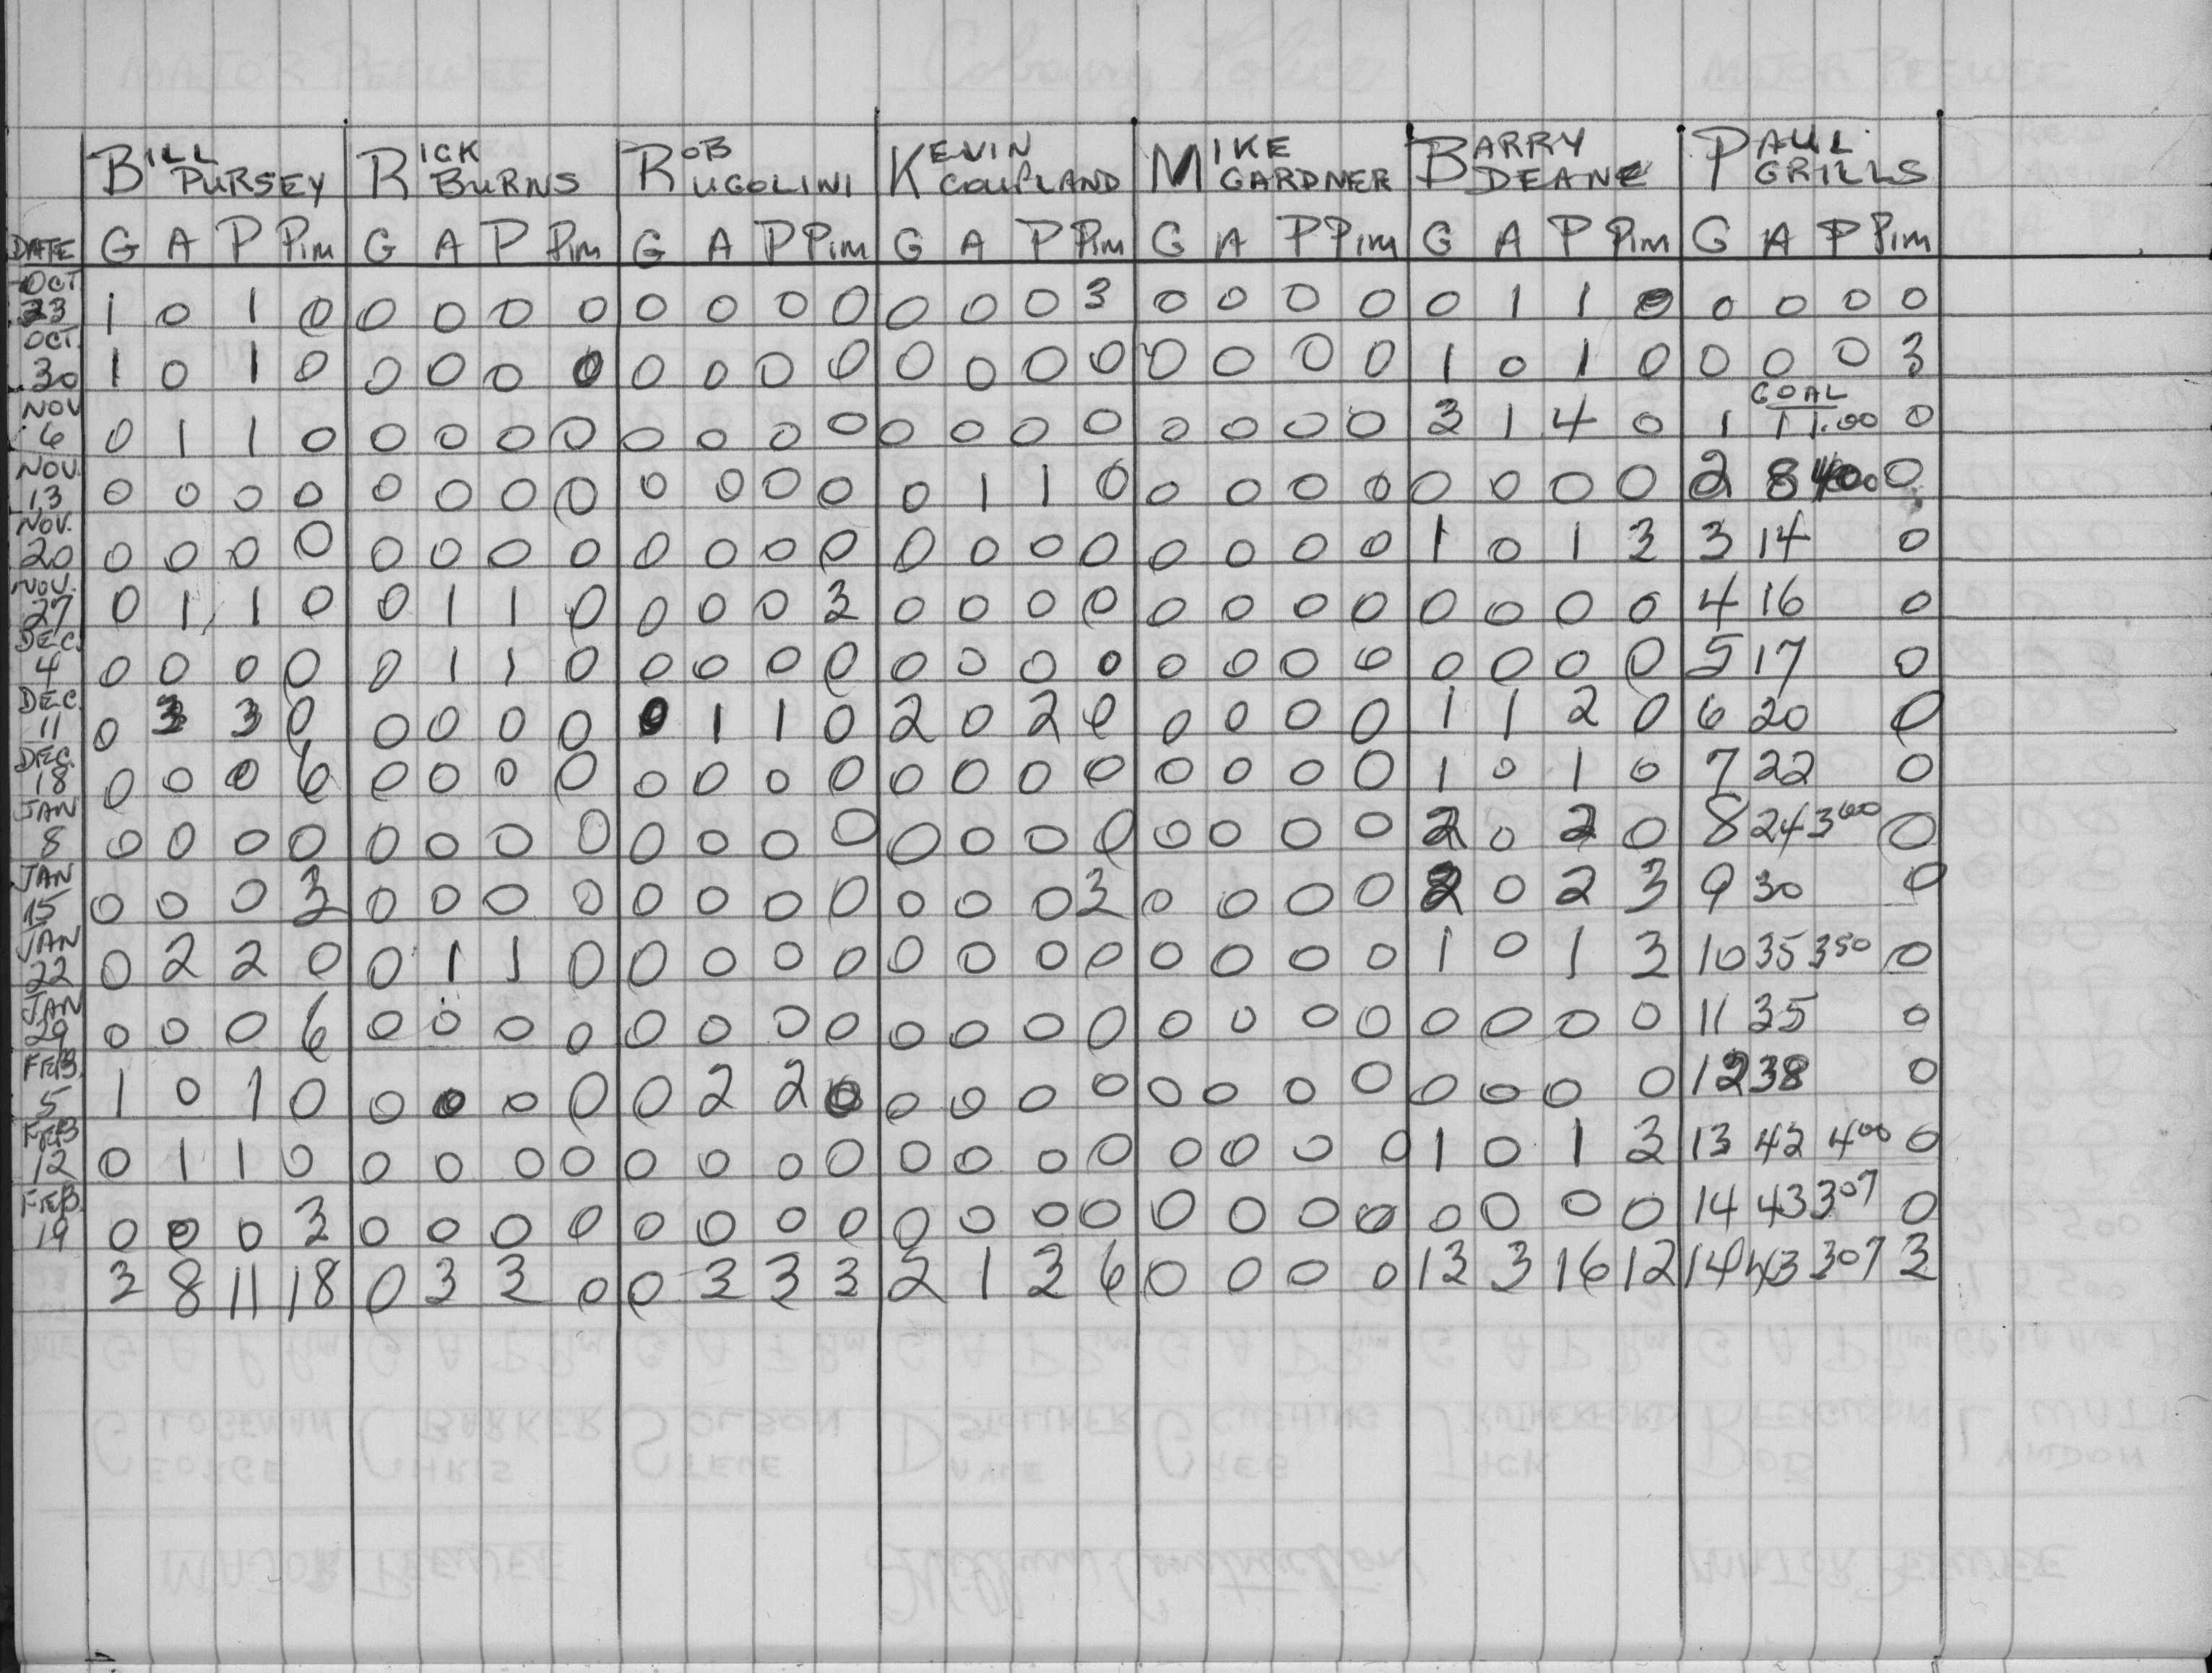 BILL PURSEY RICK BURNS ROB UGOLINI KEVIN COUPLAND MIKE GARDNER BARRY DEANE PAUL GRILLS
DATE G A P Pim G A P Pim G A P Pim G A P Pim G A P Pim G A P Pim G A P Pim
OCT 23 1 0 1 0 0 0 0 0 0 0 0 0 0 0 0 3 0 0 0 0 0 1 1 0 0 0 0 0
OCT. 30 1 0 1 0 0 0 0 0 0 0 0 0 0 0 0 0 0 0 0 0 1 0 1 0 0 0 0 3
GOAL
NOV 6 0 1 1 0 0 0 0 0 0 0 0 0 0 0 0 0 0 0 0 0 3 1 4 0 1 11 11.00 0
NOV. 13 0 0 0 0 0 0 0 0 0 0 0 0 0 1 1 0 0 0 0 0 0 0 0 0 2 8 400 0
NOV. 20 0 0 0 0 0 0 0 0 0 0 0 0 0 0 0 0 0 0 0 0 1 0 1 3 3 14 0
NOV. 27 0 1 1 0 0 1 1 0 0 0 0 3 0 0 0 0 0 0 0 0 0 0 0 0 4 16 0
DEC. 4 0 0 0 0 0 1 1 0 0 0 0 0 0 0 0 0 0 0 0 0 0 0 0 0 5 17 0
DEC. 11 0 3 3 0 0 0 0 0 0 1 1 0 2 0 2 0 0 0 0 0 1 1 2 0 6 20 0
DEC. 18 0 0 0 6 0 0 0 0 0 0 0 0 0 0 0 0 0 0 0 0 1 0 1 0 7 22 0
JAN 8 0 0 0 0 0 0 0 0 0 0 0 0 0 0 0 0 0 0 0 0 2 0 2 0 8 24 300 0
JAN 15 0 0 0 3 0 0 0 0 0 0 0 0 0 0 0 3 0 0 0 0 2 0 2 3 9 30 0
JAN 22 0 2 2 0 0 1 1 0 0 0 0 0 0 0 0 0 0 0 0 0 1 0 1 3 10 35 350 0
JAN 29 0 0 0 6 0 0 0 0 0 0 0 0 0 0 0 0 0 0 0 0 0 0 0 0 11 35 0
FEB. 5 1 0 1 0 0 0 0 0 0 2 2 0 0 0 0 0 0 0 0 0 0 0 0 0 12 38 0
FEB 12 0 1 1 0 0 0 0 0 0 0 0 0 0 0 0 0 0 0 0 0 1 0 1 3 13 42 400 0
FEB. 19 0 0 0 3 0 0 0 0 0 0 0 0 0 0 0 0 0 0 0 0 0 0 0 0 14 43 307 0
3 8 11 18 0 3 3 0 0 3 3 3 2 1 3 6 0 0 0 0 13 3 16 12 14 43 307 3